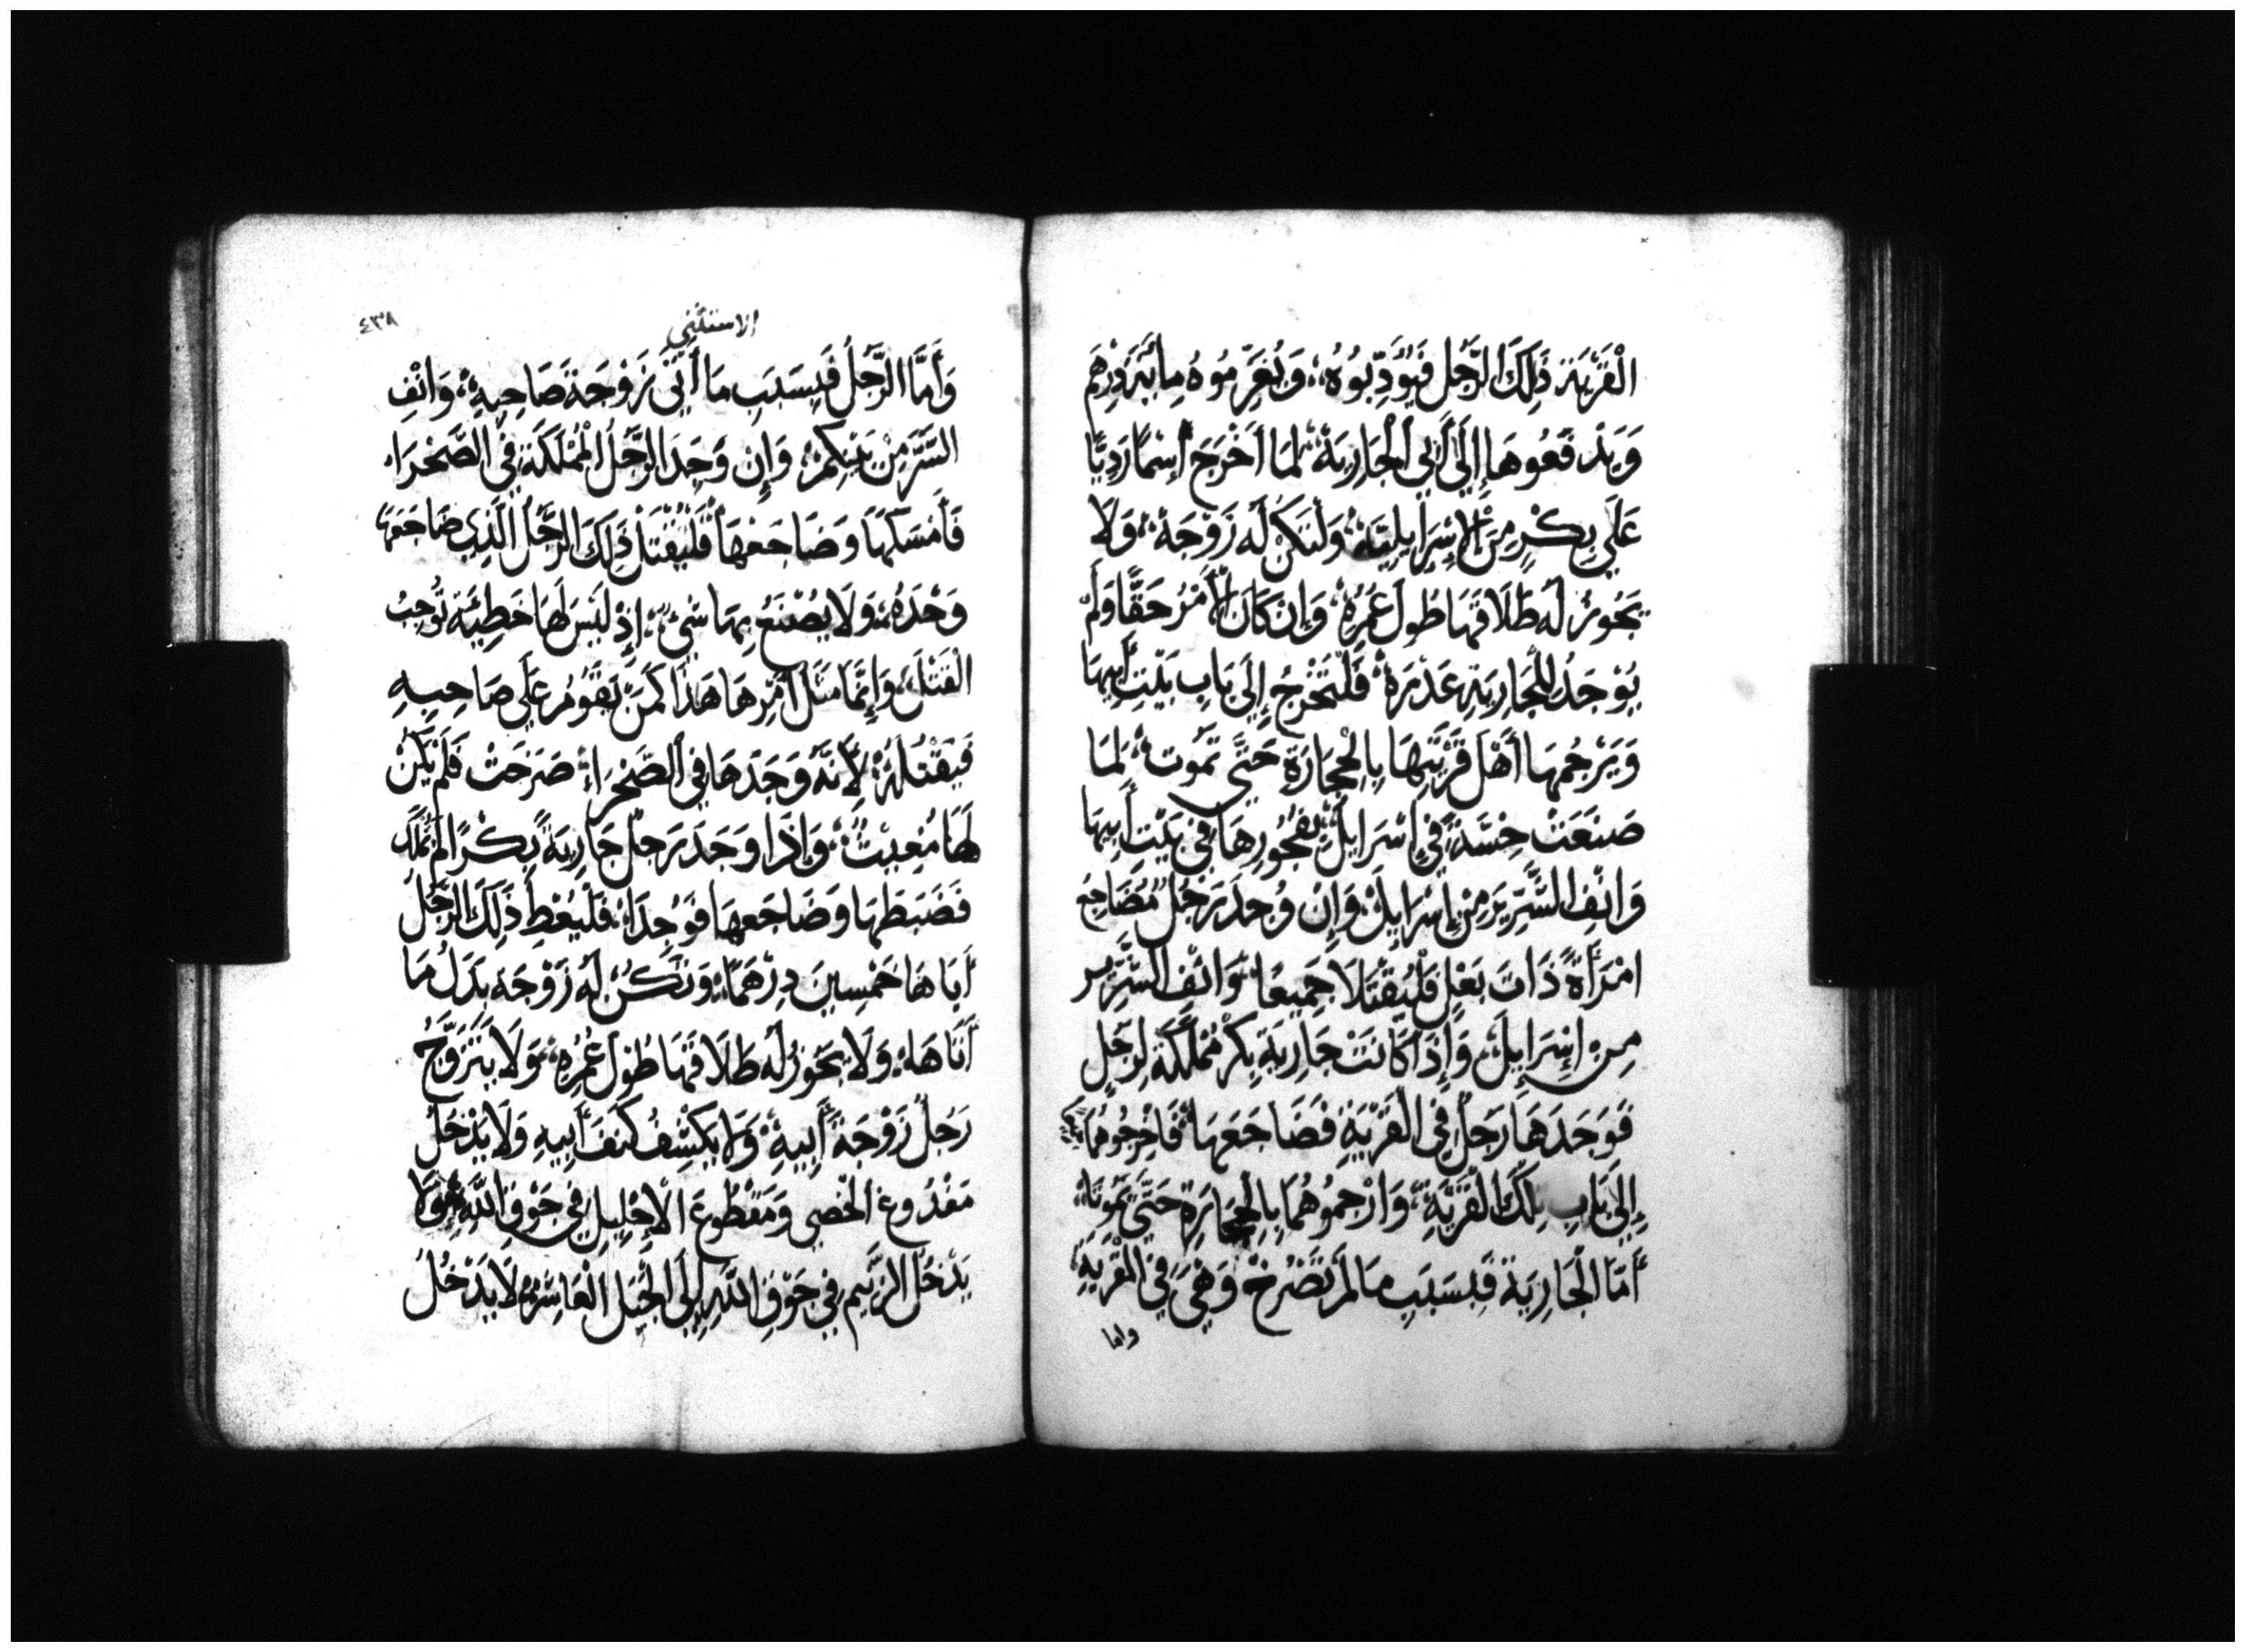 الْقَرْيَةِ ذَلِكَ الرَّجُل فَيُؤَدِّبُوُهُ، وَيُغَرِّمُوهُ مِائَةَ دِرْهَم
وَيَدْفَعُوهَا إِلَى أَبِي الْجَارِيَةِ، لِمَا أَخْرَجَ إِسْمًا رَدِيًّا
عَلَى بِكْرٍ مِنَ الإِسْرَايِلِيَّة، وَلْتَكُنْ لَهُ زَوْجَة، وَلَا
يَجُوزُ لَه طَلَاقُهَا طُولَ عُمُرِهِ، وَإِنْ كَانَ الْأَمْرُ حَقًّا وَلَمْ
يُوْجَدُ لِلْجَارِيَةِ عَذْرَة، فَلْتَخْرُجْ إِلَى بَابِ بَيْتِ أَبِيهَا
وَيَرْجُمُهَا أَهْلَ قَرْيَتِهَا بِالْحِجَارَةِ حَتَّى تَمُوت، لِمَا
صَنَعَتْ خِسَّةً فِي إِسْرَايِلَ، بِفُجُورِهَا فِي بَيْتِ أَبِيهَا
وَانْفِ الشَّرِّيرَ مِنْ إِسْرَايِلَ، وَإِنْ وُجِدَ رَجُلٌ مُضَاجِع
امْرَأَةً ذَاتَ بَعْلٍ فَلْيُقْتَلَا جَمِيعًا، وَانْفِ الشَّرِّير
مِن إِسْرَايِلَ، وَإِذَا كَانَتْ جَارِيَةٌ بِكْرٌ مُمْلَكَة لِرَجُلٍ
فَوَجَدَهَا رَجُلٌ فِي الْقَرْيَةِ فَضَاجَعَهَا، فَاخْرِجُوهُمَا
إِلَى بَابِ تِلْكَ الْقَرْيَةِ، وَارْجُمُوهُمَا بِالْحِجَارَةِ حَتَّى يَمُوتَا،
أَمَّا الْجَارِيَة فَبِسَبَبِ مَا لَمْ تَصْرُخْ وَهْيَ فِي الْقَرْيَةِ،
واما
الاستثني
٤٣٨
وَأَمَّا الرَّجُلُ فَبِسَبَبِ مَا أَتَى زَوْجَة صَاحِبِهِ، وَانْفِ
الشَّرَّ مِنْ بَيْنِكُمْ، وَإِن وَجَدَ الرَّجُلُ الْمُمْلَكَةَ فِي الصَّحْرَاء
فَأَمْسَكَهَا وَضَاجَعَهَا فَلْيُقْتَلْ ذَلِكَ الرَّجُلُ الَّذِي ضَاجَعَهَا
وَحْدَهُ، وَلَا يُصْنَعُ بِهَا شَيْ، إِذْ لَيْسَ لَهَا خَطِيَّة تُوجِبُ
الْقَتْلَ، وَإِنَّمَا مَثَلُ أَمْرِهَا هَذَا كَمَنْ يَقُوُمُ عَلَى صَاحِبِهِ
فَيَقْتُلُهُ، لِأَنَّهُ وَجَدَهَا فِي الصَّحْرَاءِ، صَرَخَتْ فَلَمْ يَكُنْ
لَهَا مُغِيثٌ، وَإِذَا وَجَدَ رَجُلٌ جَارِيَةً بِكْرًا لَمْ تُمْلَك
فَضَبَطَهَا وَضَاجَعَهَا فَوُجِدَا، فَلْيُعْطِ ذَلِكَ الرَّجُلُ
أَبَاهَا خَمْسِينَ دِرْهَمًا، وَتَكُنْ لَهُ زَوْجَة بَدَلَ مَا
أَتَاهَا، وَلَا يَجُوزُ لَه طَلَاقُهَا طُولَ عُمُرِهِ، وَلَا يَتَزَوَّجُ
رَجُلٌ زَوْجَة أَبِيهِ، وَلَا يَكْشِفُ كَنَفَ أَبِيهِ وَلَا يَدْخُلُ
مَفْدُوغ الْخصى وَمَقْطُوعِ الْإِحْلِيلِ فِي جَوْقِ اللَّهِ، وَلَا
يَدْخُلُ الزَّنِيمُ فِي جَوْقِ اللَّهِ إِلَى الْجِيلِ الْعَاشِرِ، لَا يَدْخُلُ